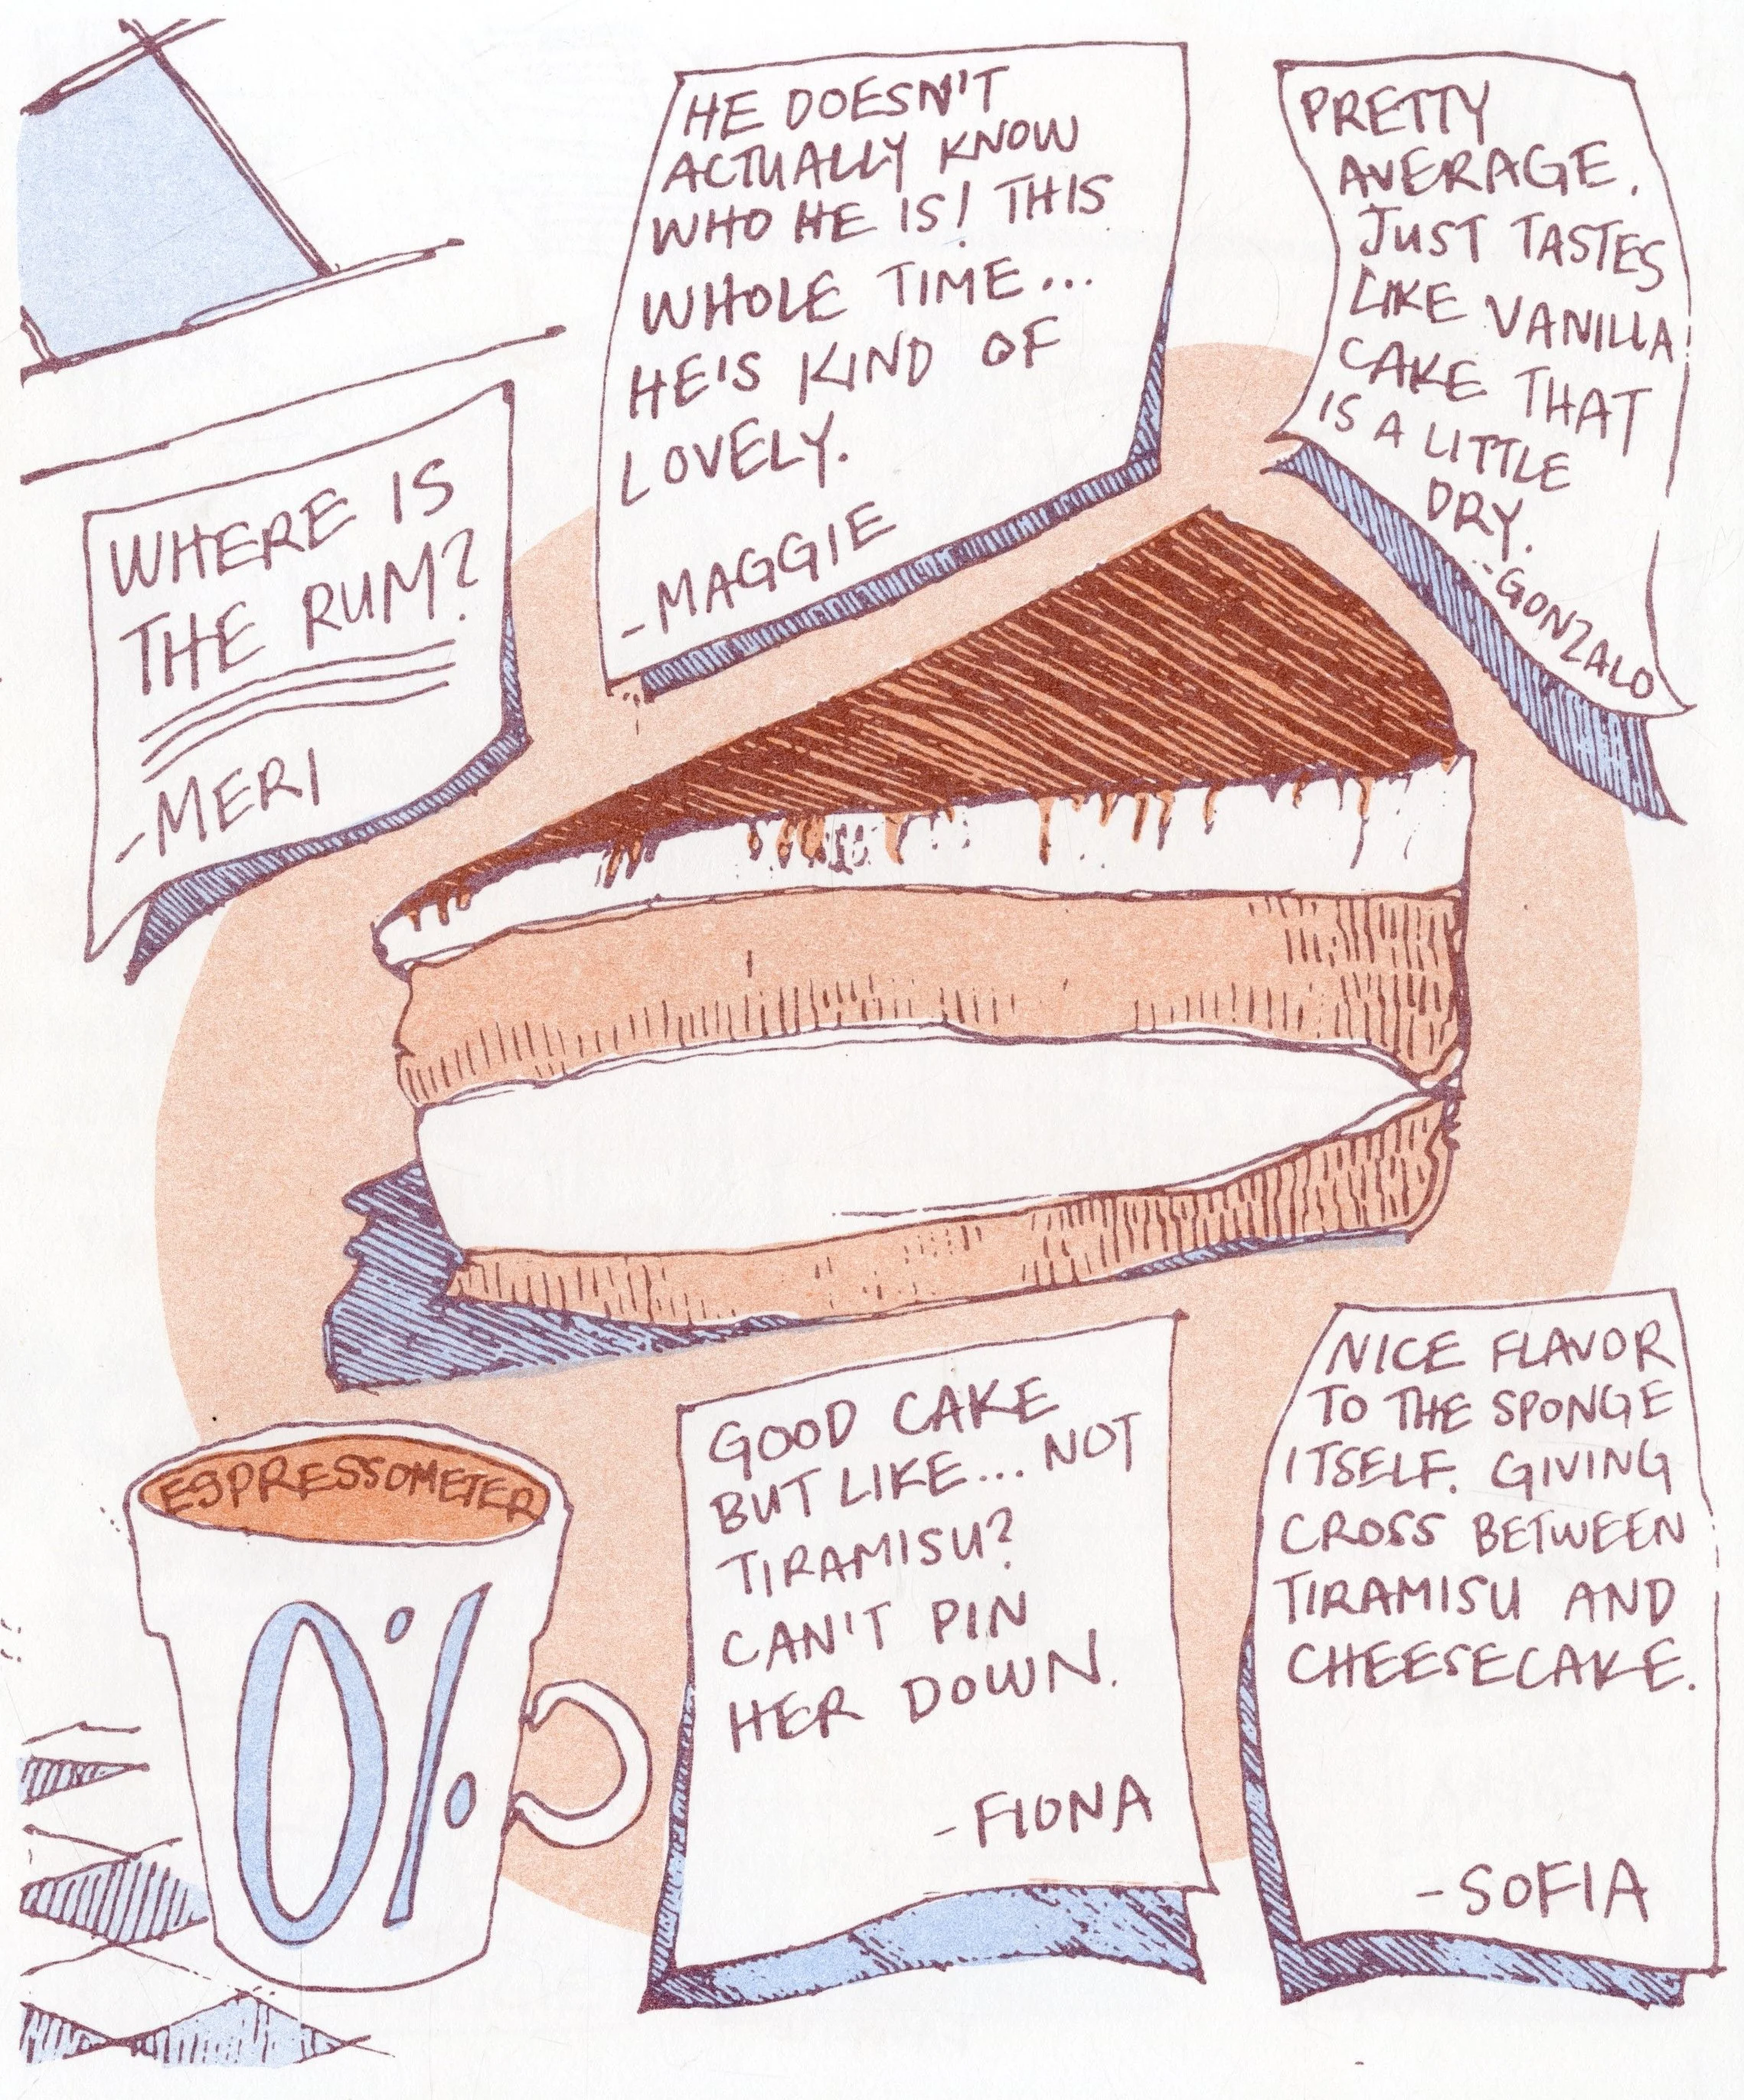 HE DOESN'T
ACTUALLY KNOW
WHO HE IS! THIS
WHOLE TIME...
HE'S KIND OF
LOVELY.
-MAGGIE
PRETTY
AVERAGE.
JUST TASTES
LIKE VANILLA
CAKE THAT
IS A LITTLE
DRY.
-GONZALO
WHERE IS
THE RUM?
-MERI
ESPRESSOMETER
0%
GOOD CAKE
BUT LIKE... NOT
TIRAMISU?
CAN'T PIN
HER DOWN.
-FIONA
NICE FLAVOR
TO THE SPONGE
ITSELF. GIVING
CROSS BETWEEN
TIRAMISU AND
CHEESECAKE.
-SOFIA